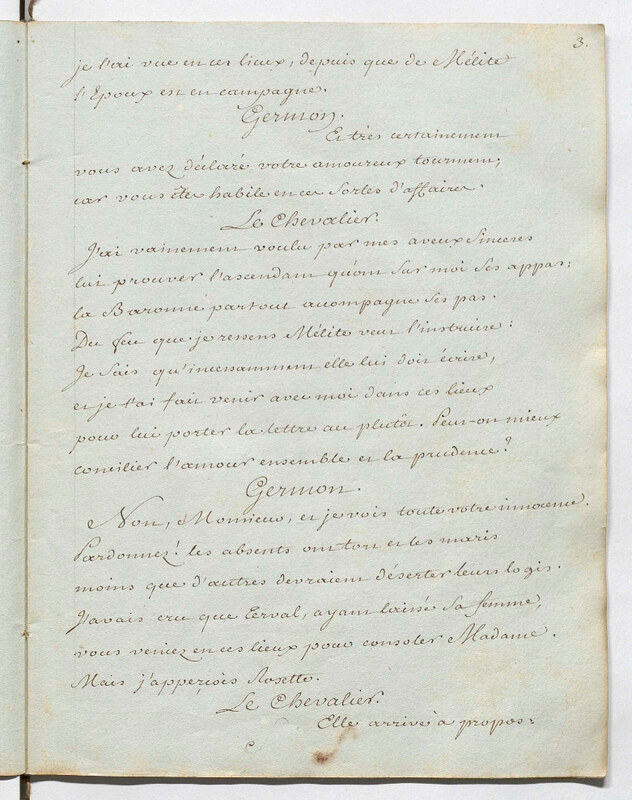 3.
je l'ai vue en ces lieux, depuis que de Mélite
l'Epoux est en campagne.
Germon.
Et très certainement
vous avez déclaré votre amoureux tourment,
car vous êtes habile en ces sortes d'affaires.
Le Chevalier.
J'ai vainement voulu par mes aveux sincères
lui prouver l'ascendant qu'ont sur moi ses appas:
la Baronne partout acompagne ses pas.
Du feu que je ressens Mélite veut l'instruire:
Je sais qu'incessamment elle lui doit écrire,
et je t'ai fait venir avec moi dans ces lieux
pour lui porter la lettre au plutôt. Peut-on mieux
concilier l'amour ensemble et la prudence?
Germon.
Non, Monsieur, et je vois toute votre innocence.
Pardonnez! les absents ont tort et les maris
moins que d'autres devraient déserter leurs logis.
J'avais cru que Terval, ayant laissé sa femme,
vous veniez en ces lieux pour consoler Madame.
Mais j'apperçois Rosette.
Le Chevalier.
Elle arrive à propos: